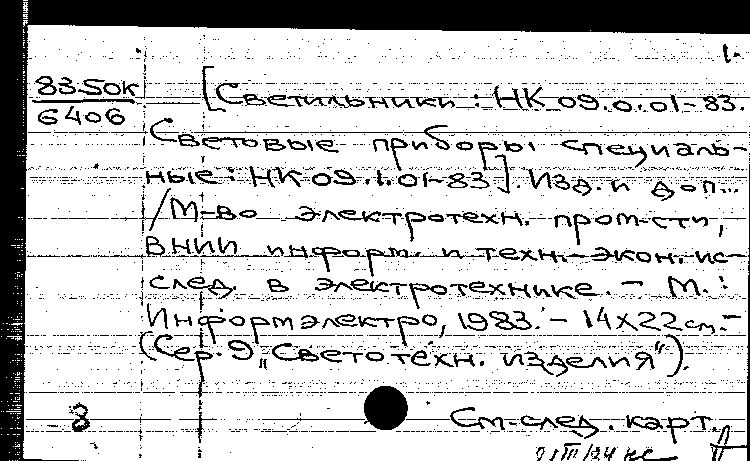 1.
83.50к
6406
[Светильники : НК 09.0.01-83.
Световые приборы специаль-
ные : НК 09.1.01-83]. Изд. и доп...
/М-во электротехн. пром-сти,
ВНИИ информ. и техн.-экон. ис-
след. в электротехнике. - М. :
Информэлектро, 1983. - 14x22 см. -
(Сер. 9 "Светотехн. изделия").
8
См-след. карт.